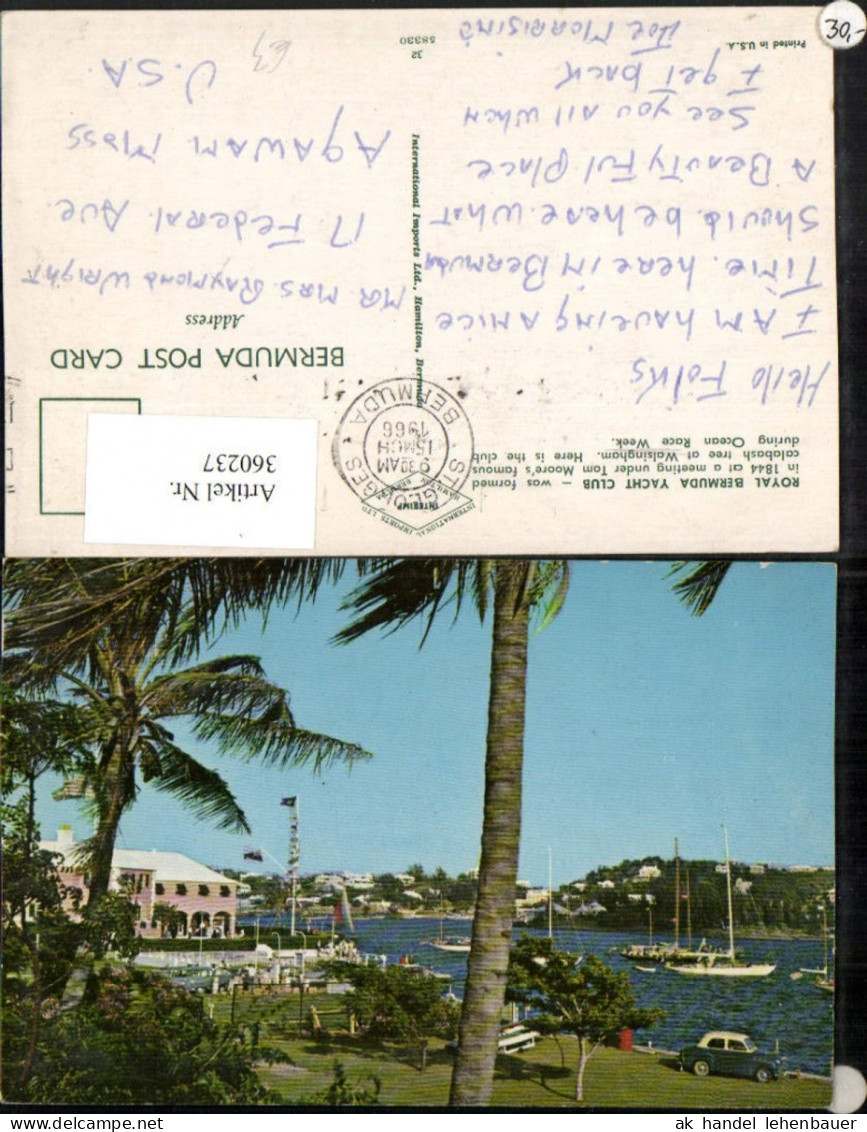 30,-
ROYAL BERMUDA YACHT CLUB – was formed
in 1844 at a meeting under Tom Moore's famous
calabash tree at Walsingham. Here is the club
during Ocean Race Week.
Hello Folks
I AM having A nice
Time. here in Bermuda
Should be here. what
A Beauty Ful Place
See you all when
I get back
Joe Morrisino
Printed in U.S.A.
INTERNATIONAL IMPORTS LTD.
INTERIMP
HAMILTON, BERMUDA
ST. GEORGES
9 30 AM
15 MCH
1966
BERMUDA
International Imports Ltd., Hamilton, Bermuda
32
58330
Artikel Nr.
360237
BERMUDA POST CARD
Address
MR. MRS. RAYMOND WRIGHT
17 Federal Ave.
AgAWAM MASS
U.S.A.
63
ak handel lehenbauer